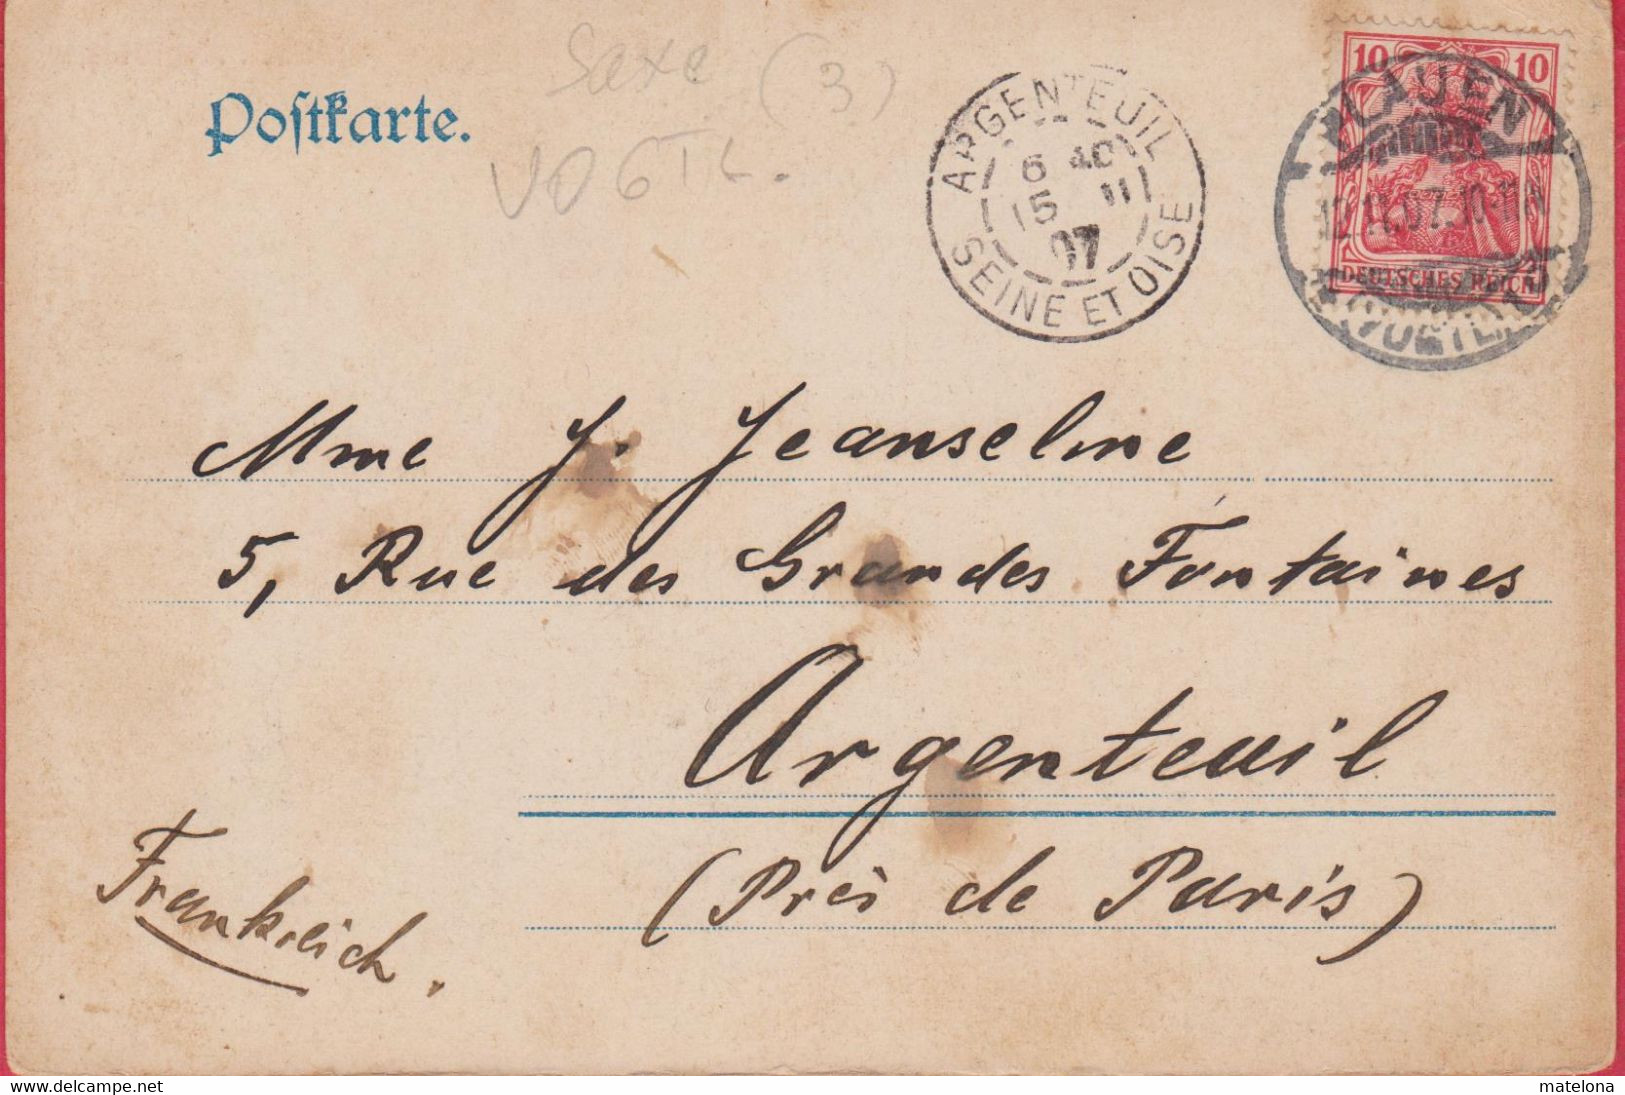 Saxe (3)
VOGTL.
Postkarte.
ARGENTEUIL
6 40
15 11
07
SEINE ET OISE
10 10
PLAUEN
12.11.07.10-11N
DEUTSCHES REICH
(VOGTL.)
Mme J. Jeanselme
5, Rue des Grandes Fontaines
Argenteuil
(Près de Paris)
Frankreich.
www.delcampe.net
matelona